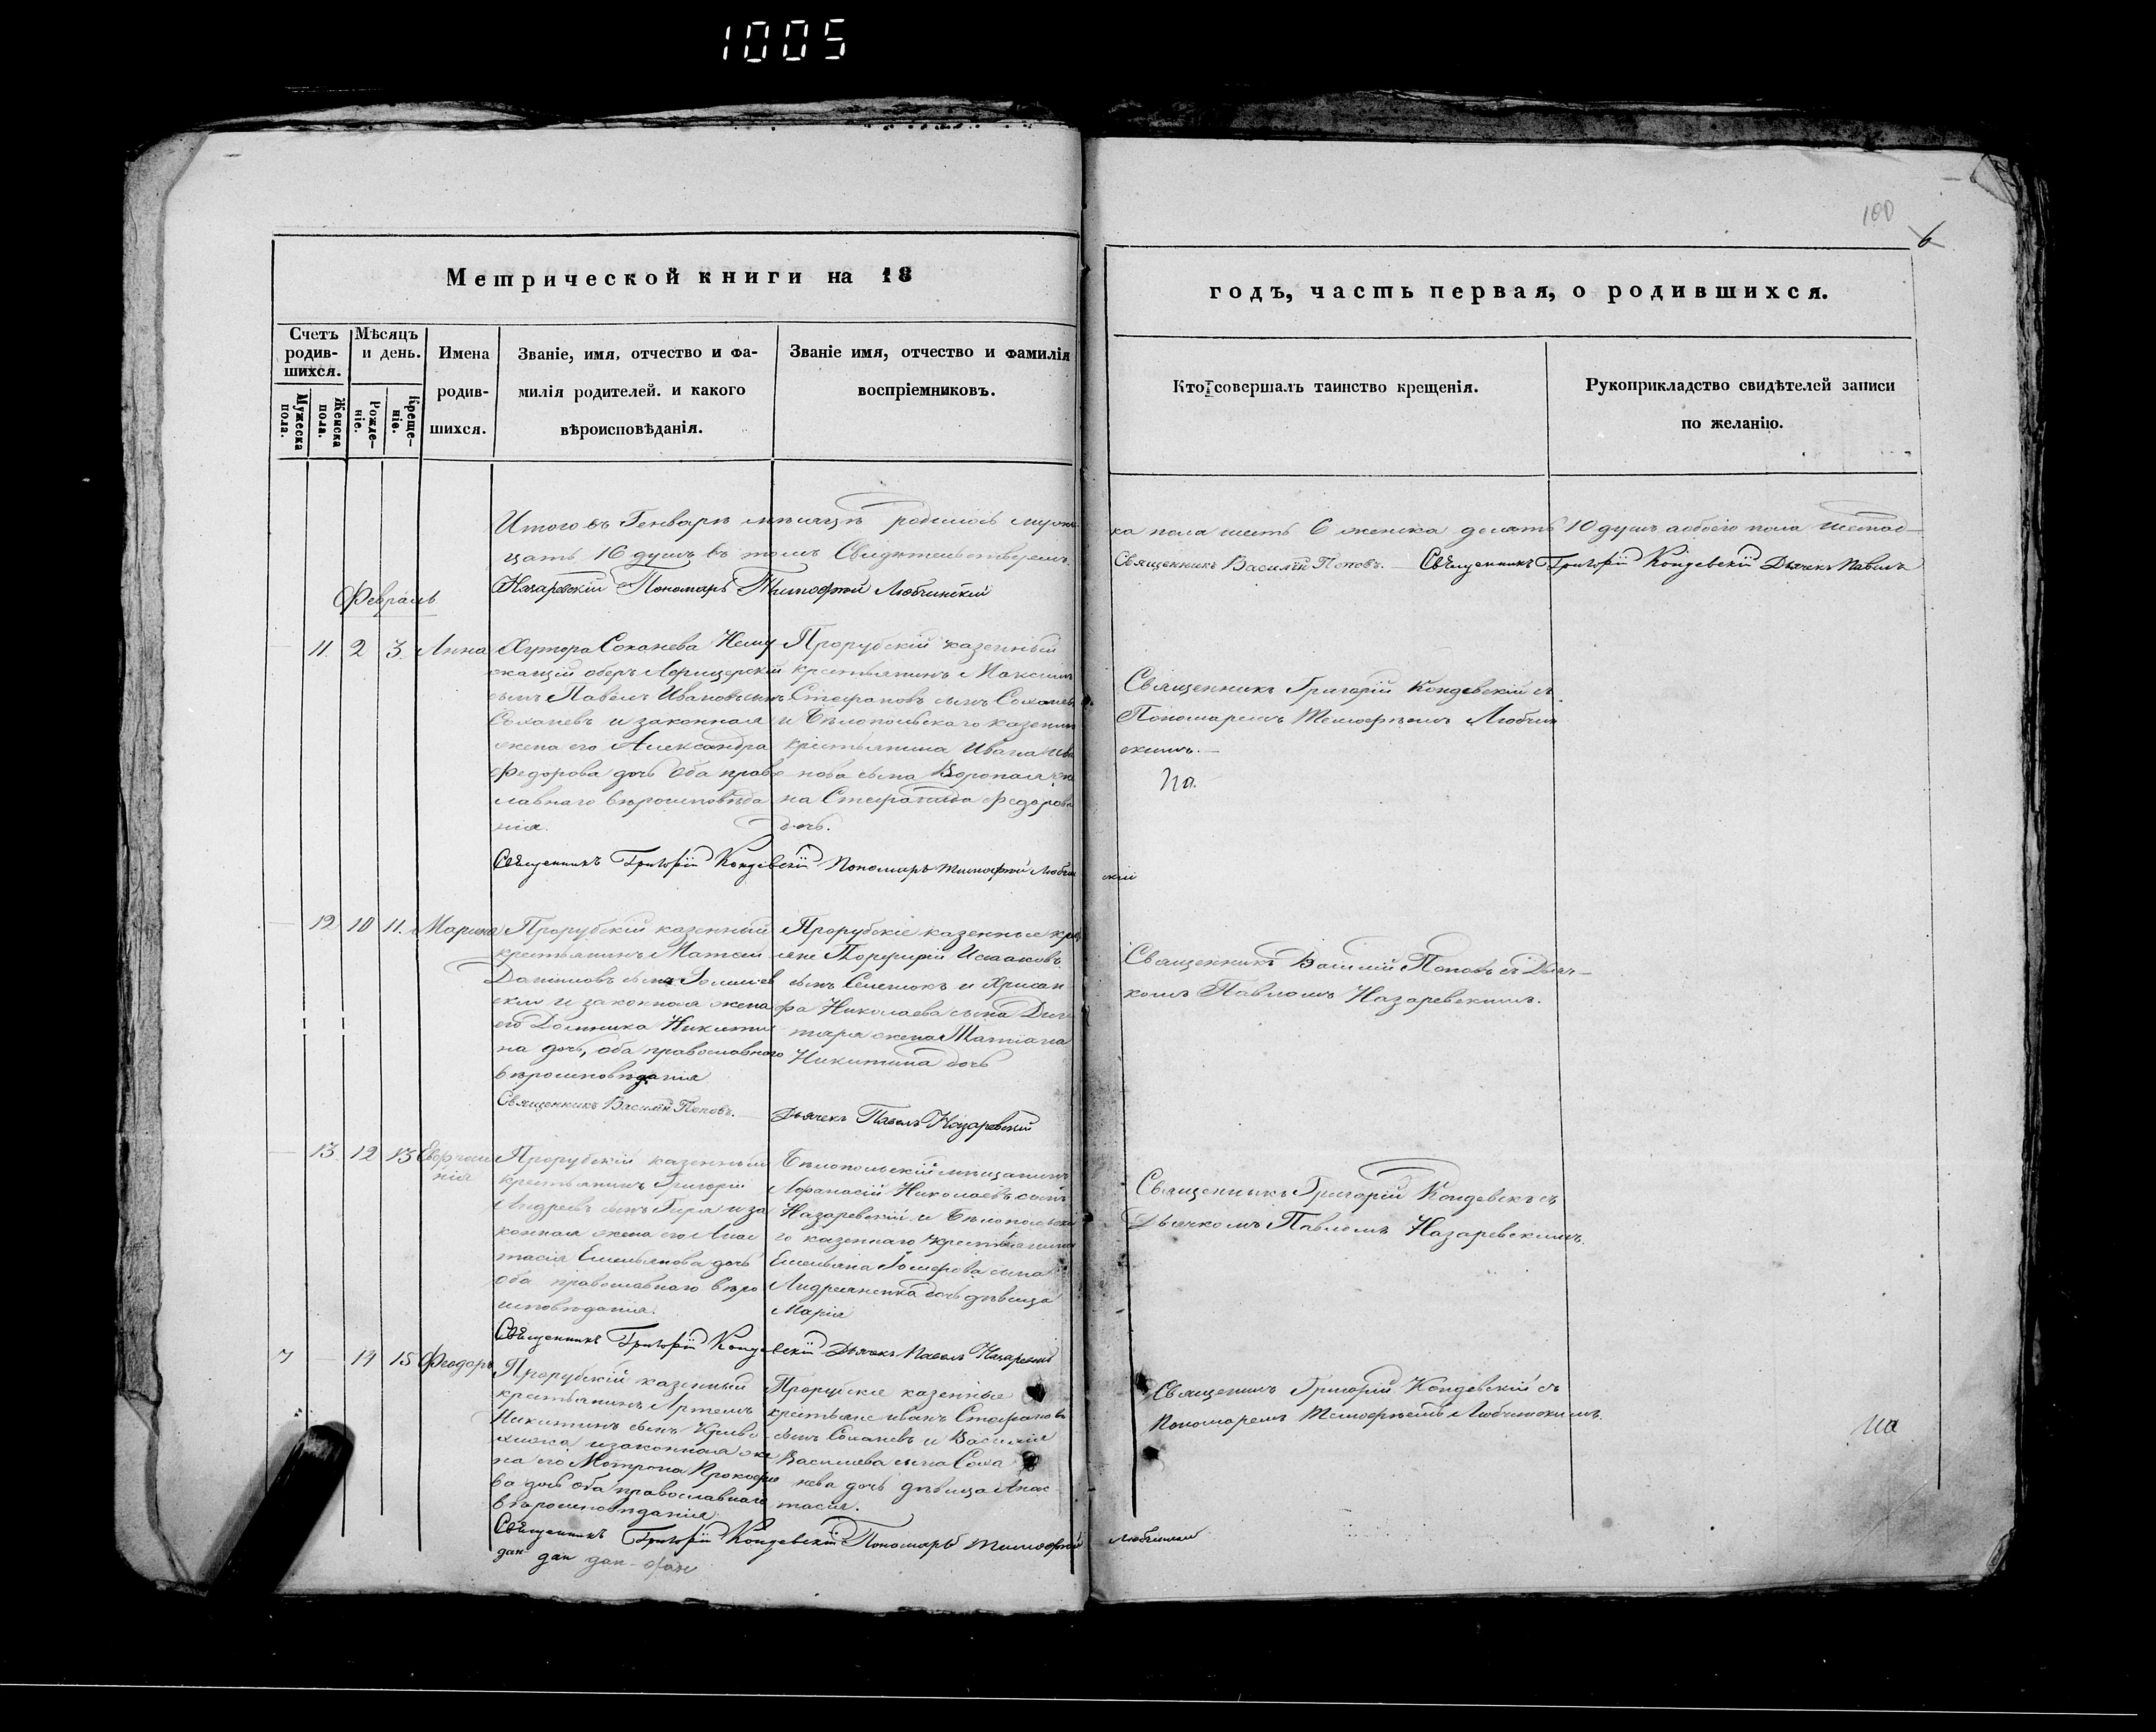 1005
100
6
Метрической книги на 18
годъ, часть первая, о родившихся.
Счетъ родив-шихся.
Мужеска пола.
Женска пола.
Мѣсяцъ и день.
Рожде-ніе.
Креще-ніе.
Имена
родив-
шихся.
Званіе, имя, отчество и фа-
милія родителей. и какого
вѣроисповѣданія.
Званіе имя, отчество и фамилія
воспріемниковъ.
Кто совершалъ таинство крещенія.
Рукоприкладство свидѣтелей записи
по желанію.
Итого въ Генварѣ мѣсяцѣ родилось муже
ка пола шесть 6 женска десять 10 душъ а обоего пола шестнад-
цать 16 душъ въ томъ Свидѣтельствуемъ.
Священникъ Василій Поповъ. Священникъ Григорій Кондевскій Дьячекъ Павелъ
Назаревскій Пономарь Тимофей Любчинскій
Февраль
11. 2 3. Анна
Хутора Соханева Нему
жащій оберъ Афицерскій
сынъ Павелъ Ивановъ сынъ
Соханевъ и законная
жена его Александра
Федорова дочь оба право
славнаго вѣроисповѣда
нія.
Прорубскій казенный
крестьянинъ Максимъ
Стефановъ сынъ Соханевъ
и Бѣлопольскаго казенна
крестьянина Ивана Ива
нова сына Воропая же
на Стефанида Федорова
дочь.
Священникъ Григорій Кондевскій съ
Пономаремъ Тимофѣемъ Любчин
скимъ.
Священникъ Григорій Кондевскій Пономарь Тимофей Любчин
скій
12 10 11. Марина
Прорубскій казенный
крестьянинъ Матвей
Даниловъ сынъ
и законная жена
его Домника Никити
на дочь, оба православнаго
вѣроисповѣданія
Прорубскіе казенные кре
яне Порфирій Исааковъ
сынъ Селешокъ и Хрисан
фа Николаева сына Дег
тяра жена Татіана
Никитина дочь
Священникъ Василій Поповъ съ Дьяч-
комъ Павломъ Назаревскимъ.
Священникъ Василій Поповъ.
Дьячекъ Павелъ Назаревскій
13. 12 13 Евфросинія
Прорубскій казенный
крестьянинъ Григорій
Андреевъ сынъ Гиря и за
конная жена его Анас
тасія Емельянова дочь
оба православнаго вѣро
исповѣданія.
Бѣлопольскій мѣщанинъ
Афанасій Николаевъ сынъ
Назаревскій и Бѣлопольска
го казеннаго крестьянина
Емельяна сына
Андреянка дочь дѣвица
Марія
Священникъ Григорій Кондевскъ съ
Дьячкомъ Павломъ Назаревскимъ.
Священникъ Григорій Кондевскій Дьячекъ Павелъ Назаревскій
7 14 15 Феодоръ
Прорубскій казенный
крестьянинъ Артемъ
Никитинъ сынъ Криво
и законная же
на его Мотрона Прокофье
ва дочь оба православнаго
вѣроисповѣданія.
Прорубскіе казенные
крестьяне иванъ Стефановъ
сынъ Соханевъ и Василія
Василиева сына Соха
нева дочь дѣвица Анас-
тасія.
Священникъ Григорій Кондевскій съ
Пономаремъ Тимофѣемъ Любчинскимъ.
Священникъ Григорій Кондевскій Пономарь Тимофей
Любчинскій
дан дан дан